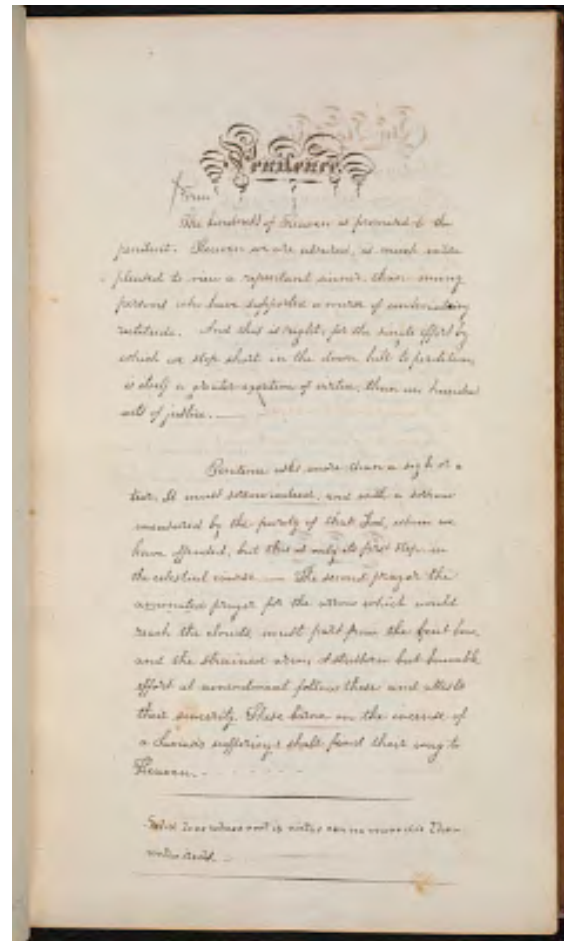 Penitence.
From
The kindness of Heaven is promised to the
penitent. Heaven we are assured, is much more
pleased to view a repentant sinner, than many
persons who have supported a course of undeviating
rectitude. And this is right, for the single effort by
which we stop short in the down hill to perdition,
is itself a greater exertion of virtue, than an hundred
acts of justice.
Penitence asks more than a sigh or a
tear. It must sorrow indeed, and with a sorrow
measured by the purity of that God, whom we
have offended, but this is only its first step in
the celestial course — The second prayer the
prayer for the arrow which would
reach the clouds, must part from the bent bow,
and the strained arm, A stubborn but humble
effort at amendment follow these and attests
their sincerity. These borne on the incense of
a Savior's sufferings shall find their way to
Heaven.
love whose root is virtue can no more die than
virtue itself